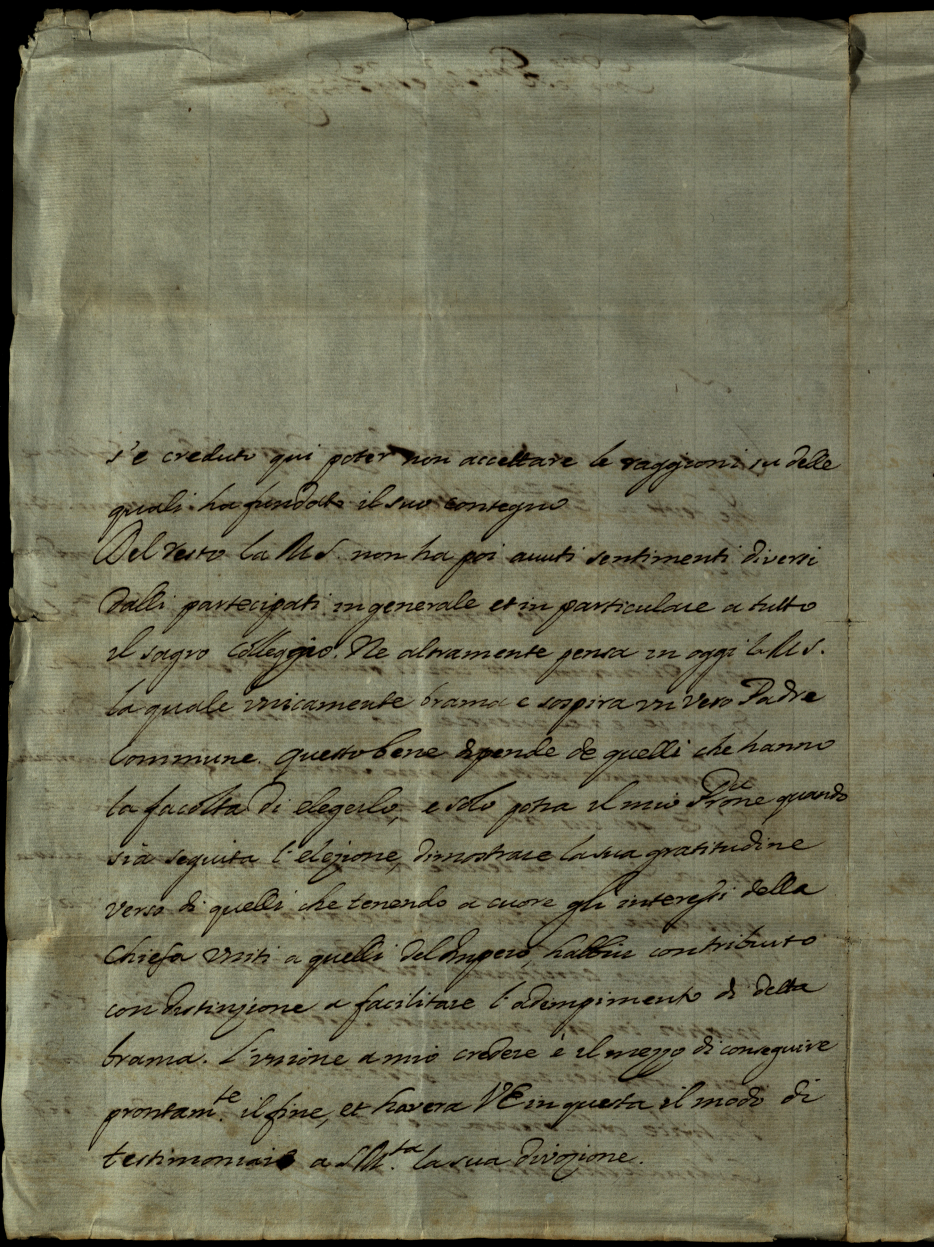 s'e creduto qui poter non accettare le raggioni su delle
quali ha fundato il suo contegno
Del resto la M.S. non ha poi avuti sentimenti diversi
dalli partecipati in generale et in particulare a tutto
il sagro Colleggio. Ne altramente pensa in oggi la M.S.
la quale unicamente brama e sospira un vero Padre
Commune. questo bene dipende de quelli che hanno
la facolta di elegerlo, e solo potra il mio Prone quando
sia seguita l'elezione, dimostrare la sua gratitudine
verso di quelli che tenendo a cuore gli interessi della
Chiesa uniti a quelli del Impero, habbin contribuito
con distinzione a facilitare l'adempimento di detta
brama. L'unione a mio credere è il mezzo di conseguire
prontamte. il fine, et havera VE in questa il modo di
testimoniare a S.Mta. la sua divozione.